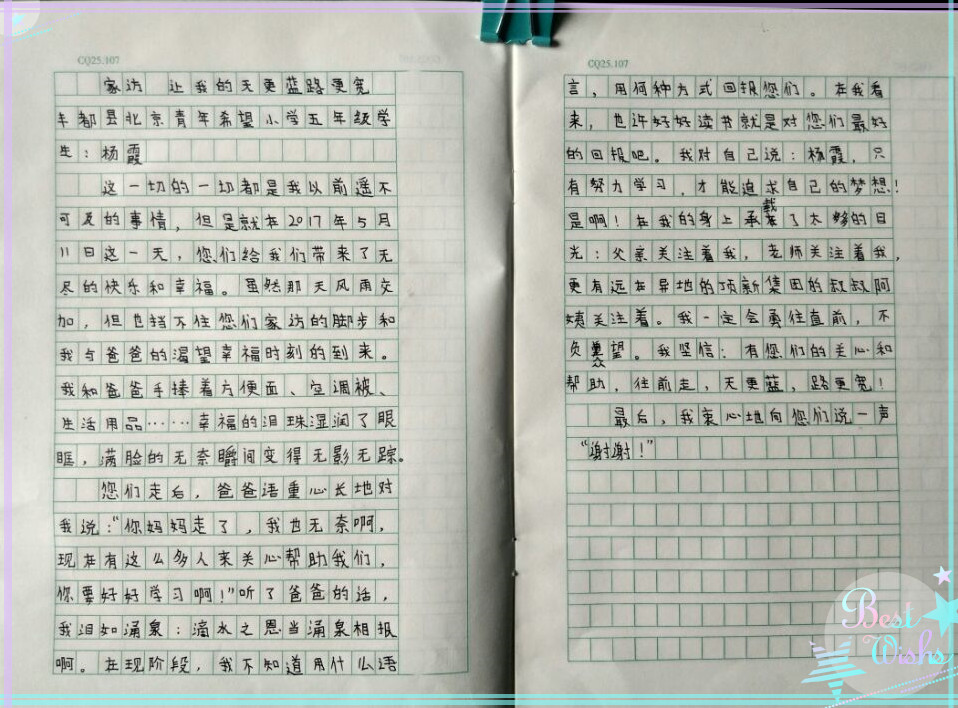 CQ25.107
家访 让我的天更蓝路更宽
丰都县北京青年希望小学五年级学
生：杨霞
这一切的一切都是我以前遥不
可及的事情，但是就在2017年5月
11日这一天，您们给我们带来了无
尽的快乐和幸福。虽然那天风雨交
加，但也挡不住您们家访的脚步和
我与爸爸的渴望幸福时刻的到来。
我和爸爸手捧着方便面、空调被、
生活用品……幸福的泪珠湿润了眼
眶，满脸的无奈瞬间变得无影无踪。
您们走后，爸爸语重心长地对
我说："你妈妈走了，我也无奈啊，
现在有这么多人来关心帮助我们，
你要好好学习啊！"听了爸爸的话，
我泪如涌泉：滴水之恩当涌泉相报
啊。在现阶段，我不知道用什么语
CQ25.107
言，用何种方式回报您们。在我看
来，也许好好读书就是对您们最好
的回报吧。我对自己说：杨霞，只
有努力学习，才能追求自己的梦想！
是啊！在我的身上承载了太多的目
光：父亲关注着我，老师关注着我，
更有远在异地的顶新集团的叔叔阿
姨关注着。我一定会勇往直前，不
负众望。我坚信：有您们的关心和
帮助，往前走，天更蓝，路更宽！
最后，我衷心地向您们说一声
"谢谢！"
Best
Wishs